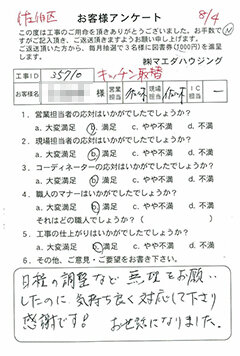 佐伯区
8/4
お客様アンケート
この度は工事のご用命を頂きありがとうございました。お手数で
すがご記入頂き、ご返送頂きますようお願い申し上げます。
ご返送頂いた方から、毎月抽選で3名様に図書券(1000円)を進呈
します。
㈱マエダハウジング
工事ID 35710 キッチン取替
お客様名 様 営業担当 現場担当 IC担当 ー
1．営業担当者の応対はいかがでしたでしょうか？
a. 大変満足 b. 満足 c. やや不満 d. 不満
2．現場担当者の応対はいかがでしたでしょうか？
a. 大変満足 b. 満足 c. やや不満 d. 不満
3．コーディネーターの応対はいかがでしたでしょうか？
a. 大変満足 b. 満足 c. やや不満 d. 不満
4．職人のマナーはいかがでしたでしょうか？
a. 大変満足 b. 満足 c. やや不満 d. 不満
それはどの職人でしょうか？（ ）
5．工事の仕上がりはいかがでしたでしょうか？
a. 大変満足 b. 満足 c. やや不満 d. 不満
6．その他、ご意見・ご要望をお書き下さい。
日程の調整など無理をお願い
したのに 気持ち良く対応して下さり
感謝です！ お世話になりました。